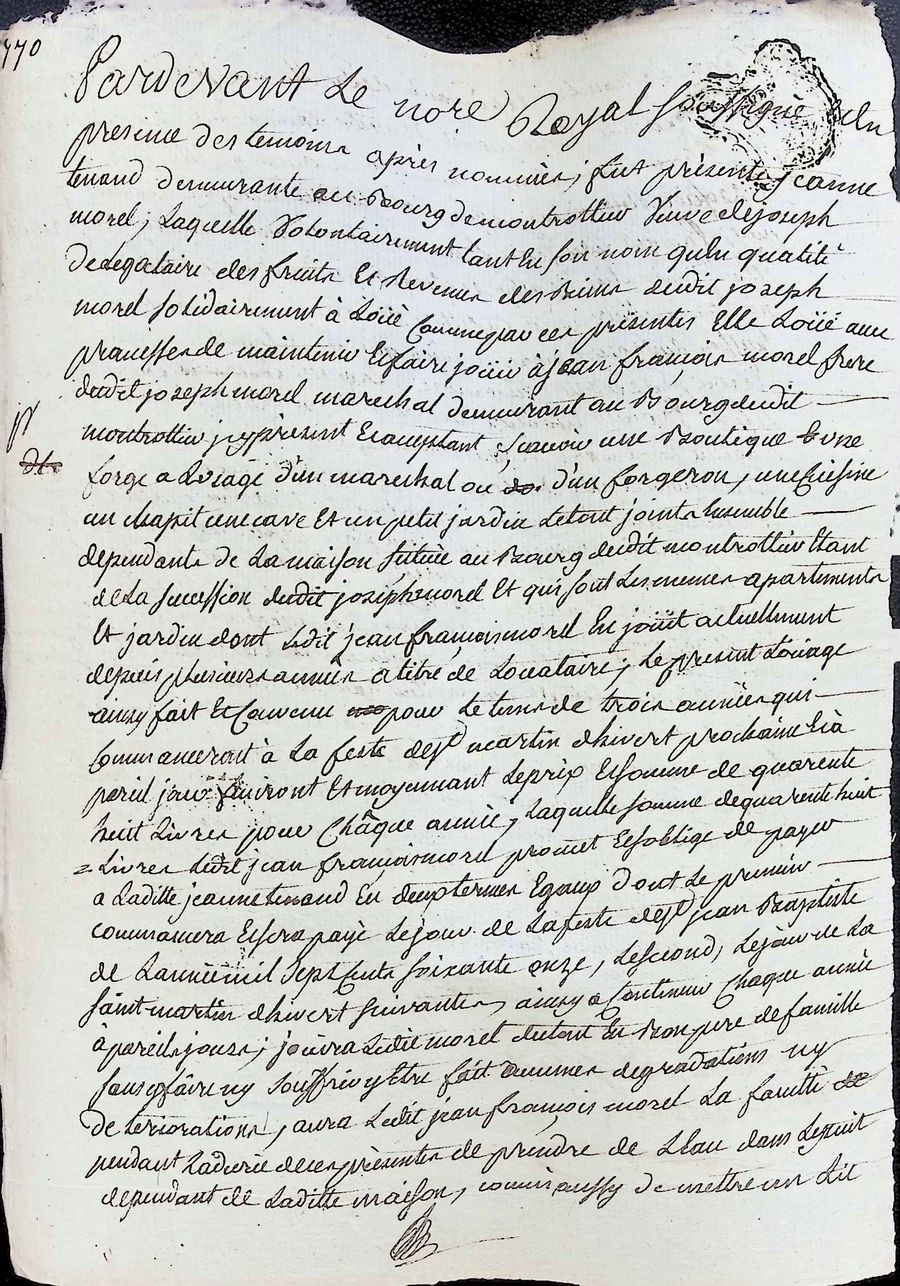 1770
Pardevant Le nore Royal soussigné Een
presence des temoins après nommées, fut présente Jeanne
tenand demeurante au Bourg de montrottier Veuve de joseph
morel, Laquelle Volontairement tant En son nom qu'En qualité
de Legataire des fruits Et Revenus des Biens dudit joseph
morel solidairement à Loüé Comme par ces présentes Elle Loüe avec
promesses de maintenir Et faire joüir à jean françois morel frere
dudit joseph morel marechal demeurant au Bourg dudit
montrottier icy présent Et acceptant, scavoir une Boutique Et une
forge a L'uzage d'un marechal ou d'un forgeron, une Cuisine
un chapit une cave Et un petit jardin Le tout joint Ensemble
dependants de La maison située au Bourg dudit montrottier Etant
de La succession dudit joseph morel Et qui sont Les memes apartements
Et jardin dont Ledit jean françois morel En joüit actuellement
depuis plusieurs années a titre de Locataire, Le present Loüage
ainsy fait Et Convenu pour Le tems de trois années qui
Commanceront à La feste de St martin d'hivert prochaine Et à
pareil jour finiront Et moyennant Le prix Et somme de quarente
huit Livres pour Châque année, Laquelle somme de quarente huit
Livres Ledit jean françois morel promet Et s'oblige de payer
a Laditte jeanne tenand En deux termes Egaux dont Le premier
commancera Et sera payé Le jour de La feste de St jean Baptiste
de L'année mil sept cents soixante onze, Le second, Le jour de La
saint martin d'hivert suivante, ainsy a Continuer Chaque année
à pareils jours; joüira Ledit morel du tout En Bon pere de famille
sans y faire ny souffrir y Etre fait aucunes degradations ny
deteriorations, aura Ledit jean françois morel La faculté
pendant La durée de ces présentes de prendre de L'Eau dans Le puit
dependant de Laditte maison, comme aussy de mettre un Lit